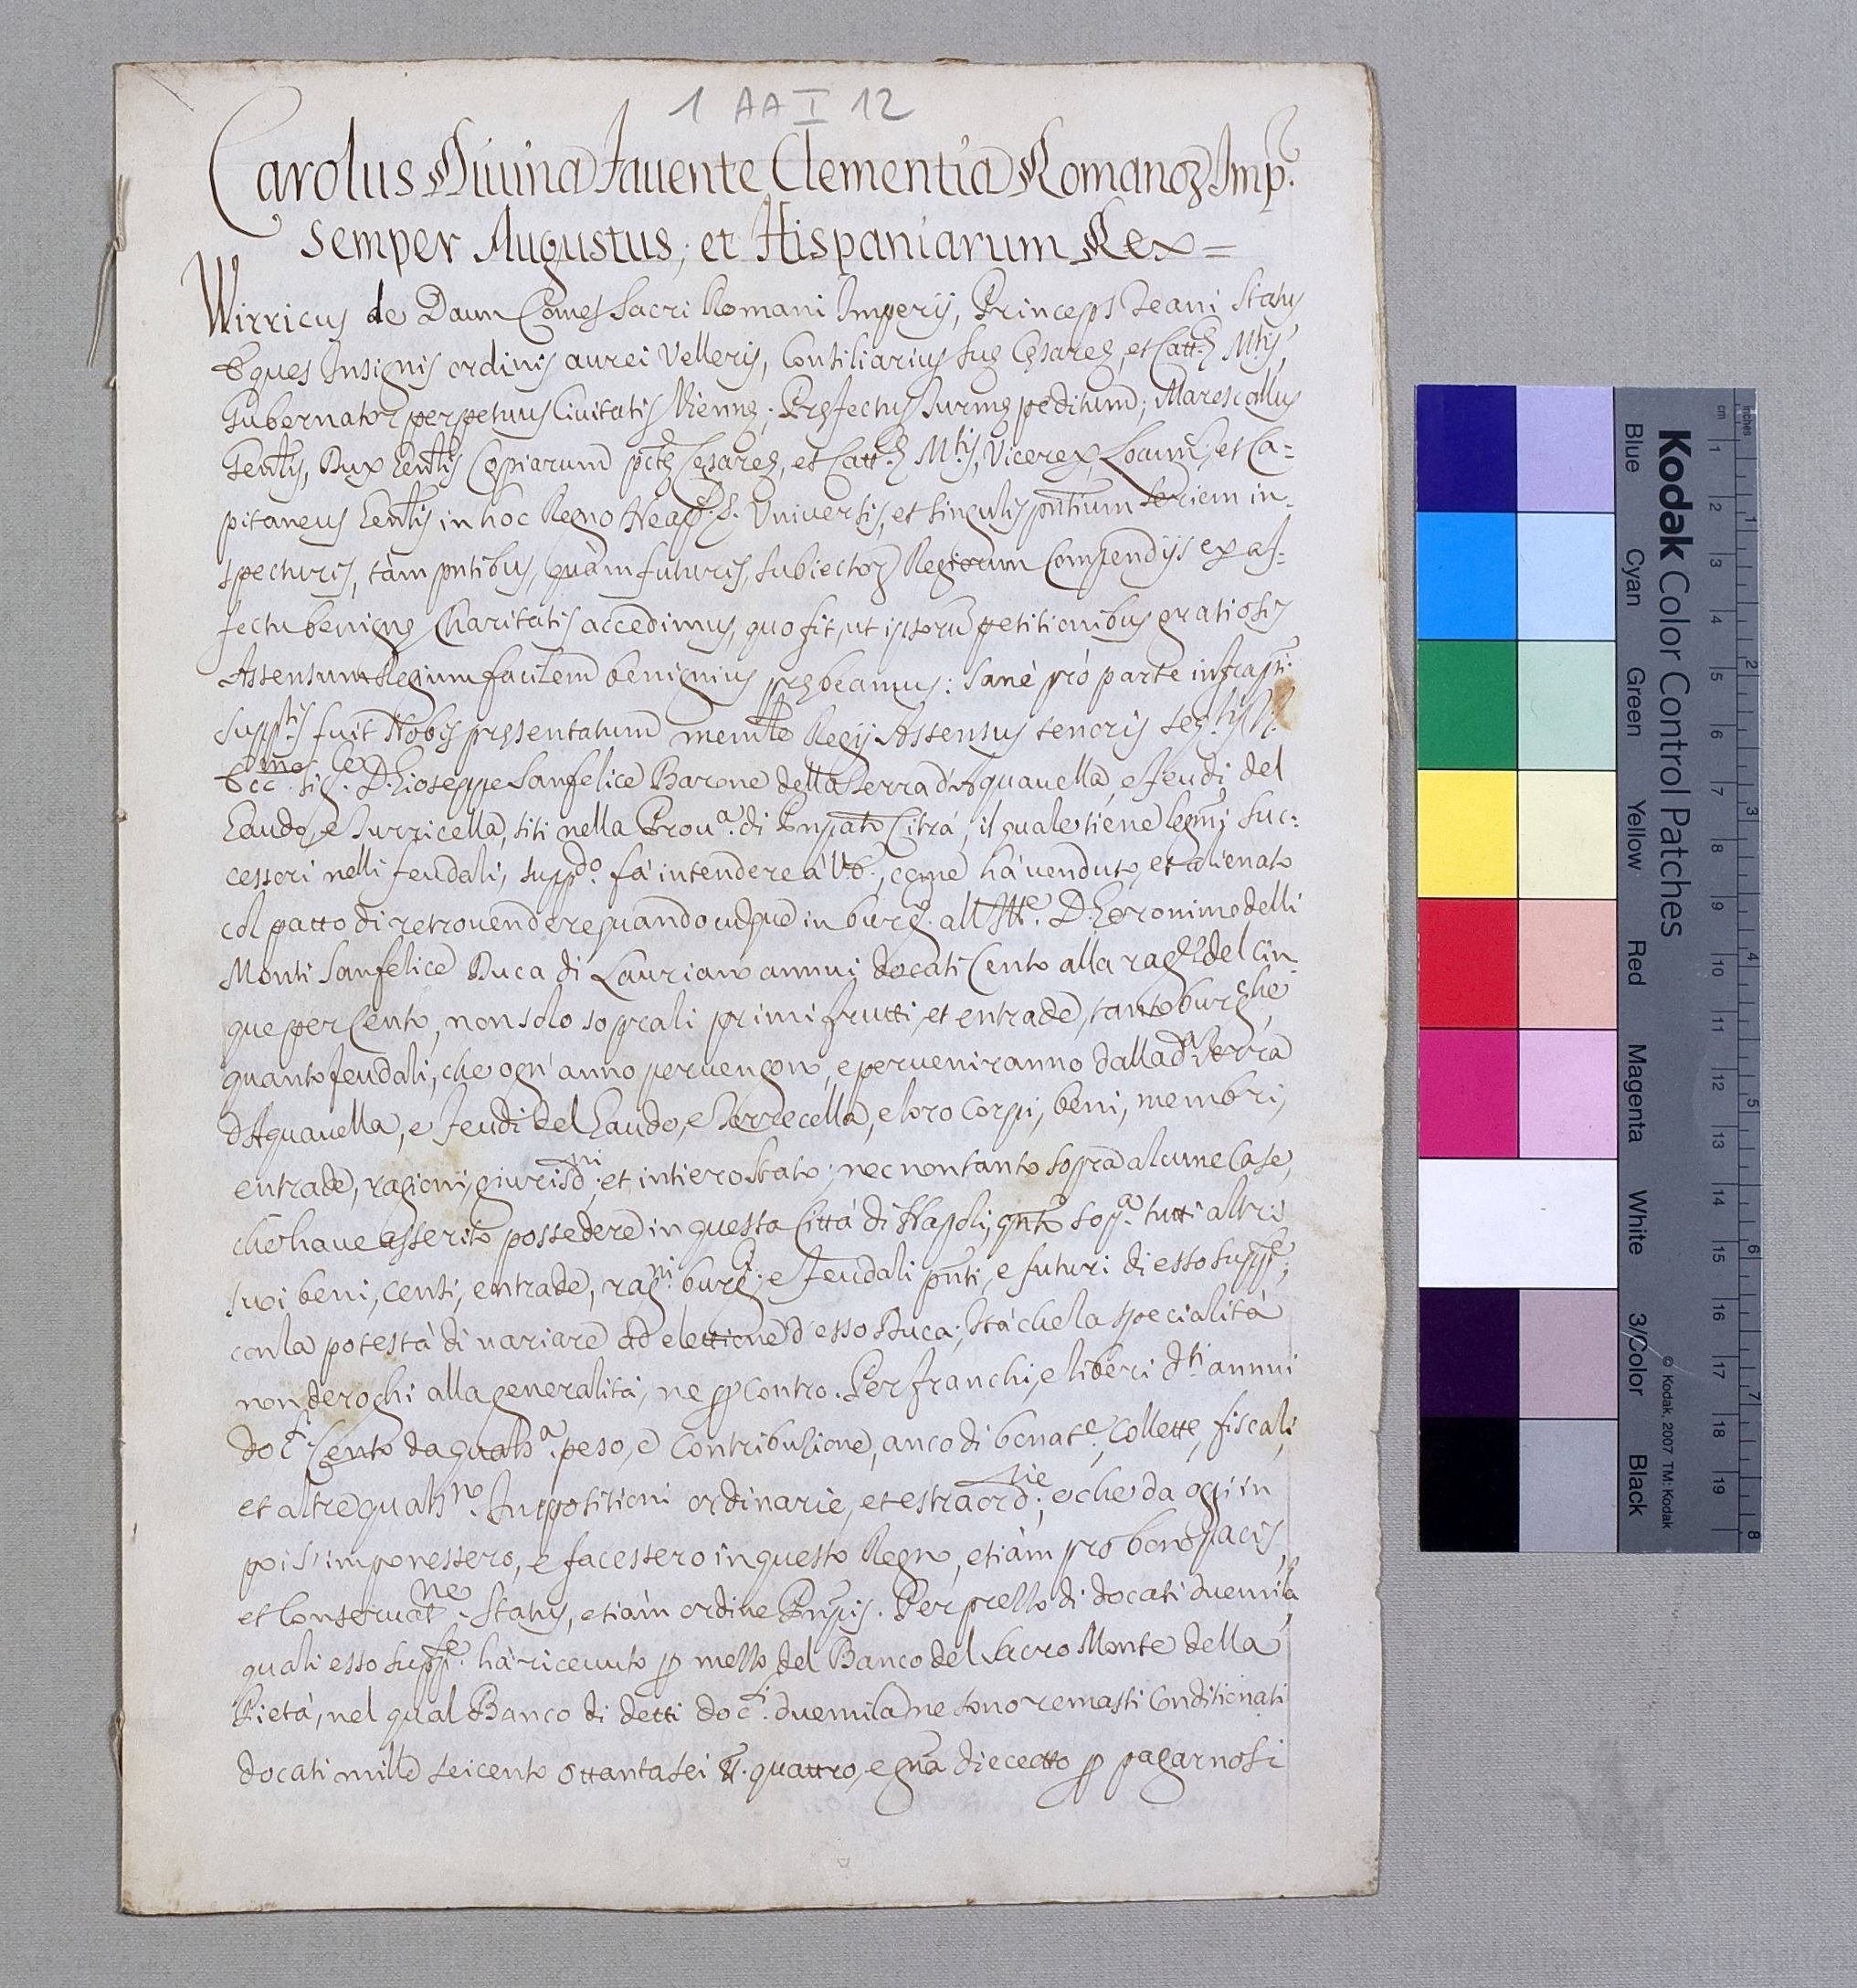 1 AA I 12
Carolus Diuina fauente Clementia Romanoꝝ Imp.
semper Augustus, et Hispaniarum Rex =
Wirricus de Daun Comes Sacri Romani Imperij, Princeps Teani Status
Eques Insignis ordinis aurei Velleris, Consiliarius Suę Cęsareę, et Catt.ę Mtis,
Gubernator perpetuus Ciuitatis Viennę; Pręfectus Turmę peditum; Marescallus
Gen̄lis, Dux Gen̄lis Copiarum p̄ctę Cęsareę, et Catt.ę Mtis, Vicerex, Locum̄, et Ca=
pitaneus Gen̄lis in hoc Regno Neap. &. Vniuersis, et singulis pn̄tium seriem in-
specturis, tàm pn̄tibus, quàm futuris, subiectoꝝ Regiorum Compendijs ex af-
fectu benignę Charitatis accedimus, quo fit, ut ipsorū petitionibus gratiosis
Assensum Regium facilem benignius prębeamus: Sanè prò parte infrapt̄i
supptis fuit Nobis pręsentatum memle Regij Assensus tenoris seq.tis
Ecc.mo sig.re D. Gioseppe Sanfelice Barone della Terra d'Aquauella, e feudi del
Gaudo, e Turricella, siti nella Prou.a di Pn̄pato Citrà, il quale tiene legmi suc:
cessori nelli feudali, supp.do fà intendere à VE., come hà venduto, et alienato
col patto di retrouendere quandocumque in burg. all'Ill.e D. Geronimo delli
Monti Sanfelice Duca di Lauriano annui docati Cento alla rag.e del Cin-
que per Cento, non solo soprali primi frutti, et entrade, tanto burg.che
quanto feudali, che ogn'anno peruengono, e perueniranno dalla d.a Terra
d'Aquauella, e feudi del Gaudo, e Torrecella, e loro Corpi, beni, membri,
entrade, ragioni, giurisd.ni, et intiero stato; nec non tanto sopra alcune Case,
che haue asserito possedere in questa Città di Napoli; qn̄to sop.a tutti altri
suoi beni, censi, entrade, rag.ni burg.ci, e feudali pn̄ti, e futuri di esso supp.e;
con la potestà di variare ad elettione d'esso Duca; Ità che la specialità
non deroghi alla generalità, ne ꝑ Contro. Per franchi, e liberi d.ti annui
doc.ti Cento da qualsª. peso, e Contribuzione, anco di bonat.e, Collette, fiscali,
et altre quals.no Impositioni ordinarie, et estraord.rie, e che da oggi in
poi s'imponessero, e facessero in questo Regno, etiàm prò bono pacis,
et Conseruat.ne Status, etiàm ordine Pn̄pis. Per prezzo di docati duemila,
quali esso supp.e hà riceuuto ꝑ mezzo del Banco del Sacro Monte della
Pietà, nel qual Banco di detti doc.ti duemila ne sono remasti Conditionati
docati mille seicento ottantasei tt. quattro, e gn̄a dieceotto ꝑ pagarnosi
Kodak Color Control Patches
Blue Cyan Green Yellow Red Magenta White 3/Color Black
© Kodak, 2007 TM: Kodak
cm 1 2 3 4 5 6 7 8 9 10 11 12 13 14 15 16 17 18 19
inches 1 2 3 4 5 6 7 8